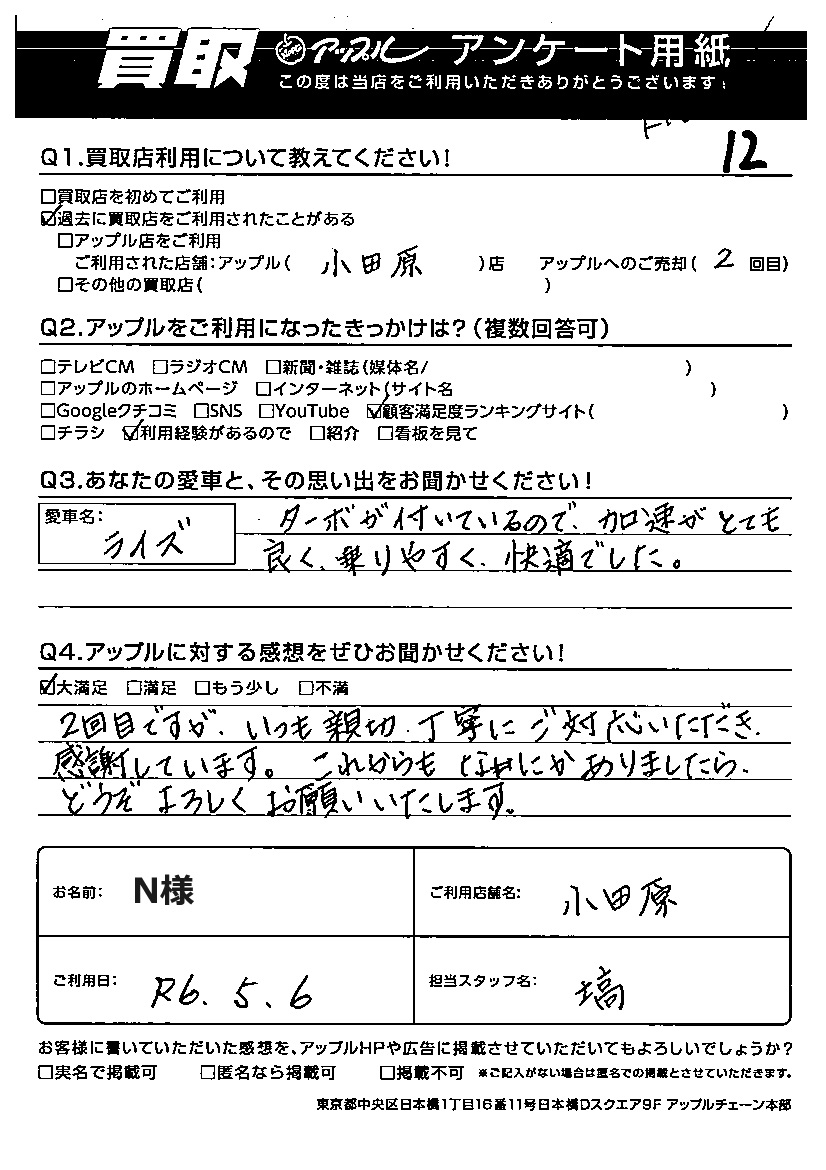 買取 アップル アンケート用紙
この度は当店をご利用いただきありがとうございます!
12
Q1.買取店利用について教えてください!
□買取店を初めてご利用
☑過去に買取店をご利用されたことがある
□アップル店をご利用
ご利用された店舗:アップル( 小田原 )店 アップルへのご売却( 2 回目)
□その他の買取店( )
Q2.アップルをご利用になったきっかけは?(複数回答可)
□テレビCM □ラジオCM □新聞・雑誌(媒体名/ )
□アップルのホームページ □インターネット(サイト名 )
□Googleクチコミ □SNS □YouTube ☑顧客満足度ランキングサイト( )
□チラシ ☑利用経験があるので □紹介 □看板を見て
Q3.あなたの愛車と、その思い出をお聞かせください!
愛車名: ライズ
ターボが付いているので、加速がとても
良く、乗りやすく、快適でした。
Q4.アップルに対する感想をぜひお聞かせください!
☑大満足 □満足 □もう少し □不満
2回目ですが、いつも親切、丁寧にご対応いただき、
感謝しています。これからもなにかありましたら、
どうぞよろしくお願いいたします。
お名前: N様 ご利用店舗名: 小田原
ご利用日: R6.5.6 担当スタッフ名: 塙
お客様に書いていただいた感想を、アップルHPや広告に掲載させていただいてもよろしいでしょうか?
□実名で掲載可 □匿名なら掲載可 □掲載不可 ※ご記入がない場合は匿名での掲載とさせていただきます。
東京都中央区日本橋1丁目16番11号日本橋Dスクエア9F アップルチェーン本部